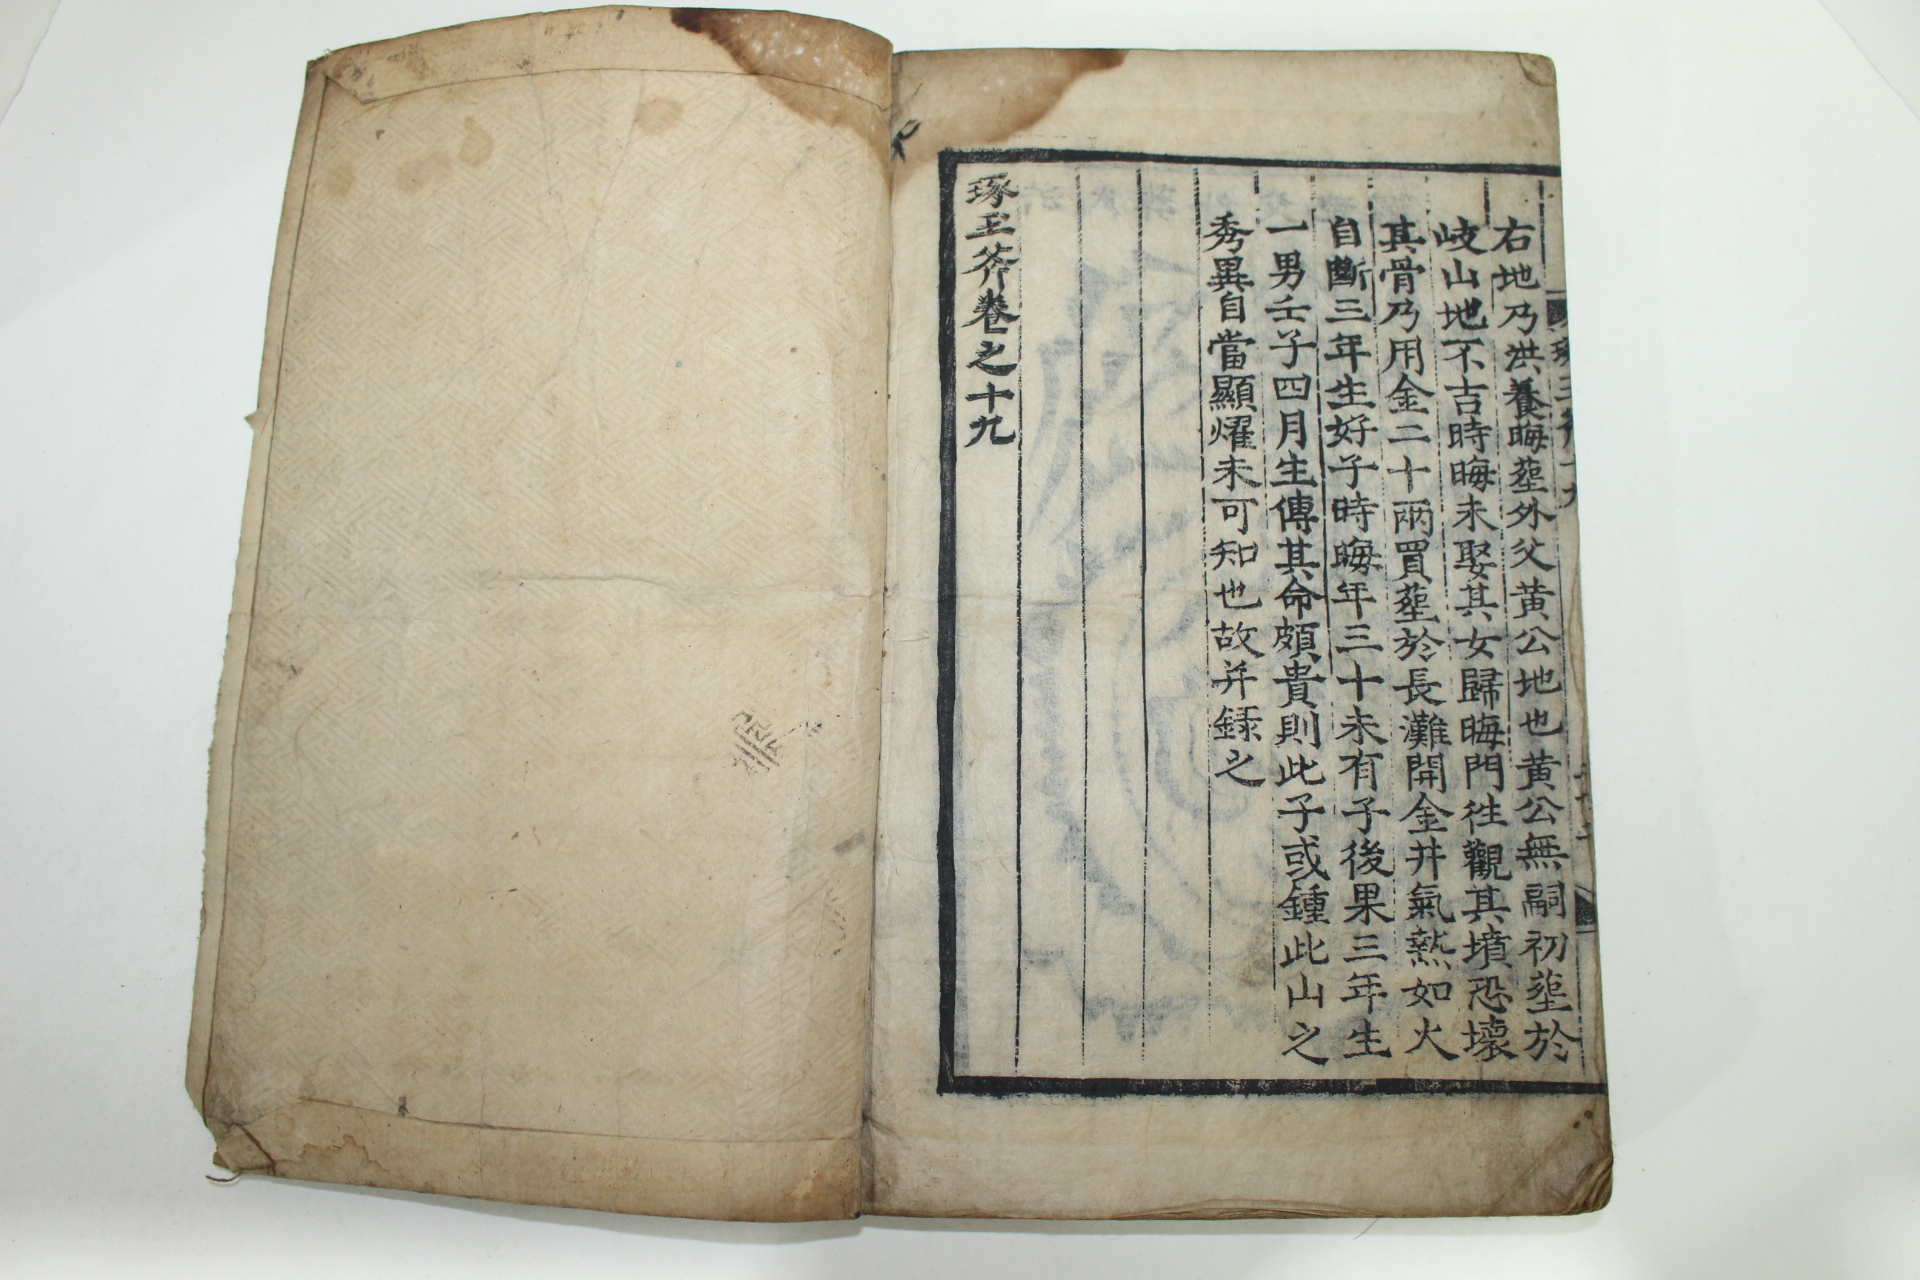 右地乃洪養晦塟外父黄公地也黄公無嗣初塟於
岐山地不吉時晦未娶其女歸晦門徃觀其墳恐壞
其骨乃用金二十兩買塟於長灘開金井氣熱如火
自斷三年生好子時晦年三十未有子後果三年生
一男壬子四月生傳其命頗貴則此子或鍾此山之
秀異自當顯燿未可知也故并録之
琢玉斧卷之十九